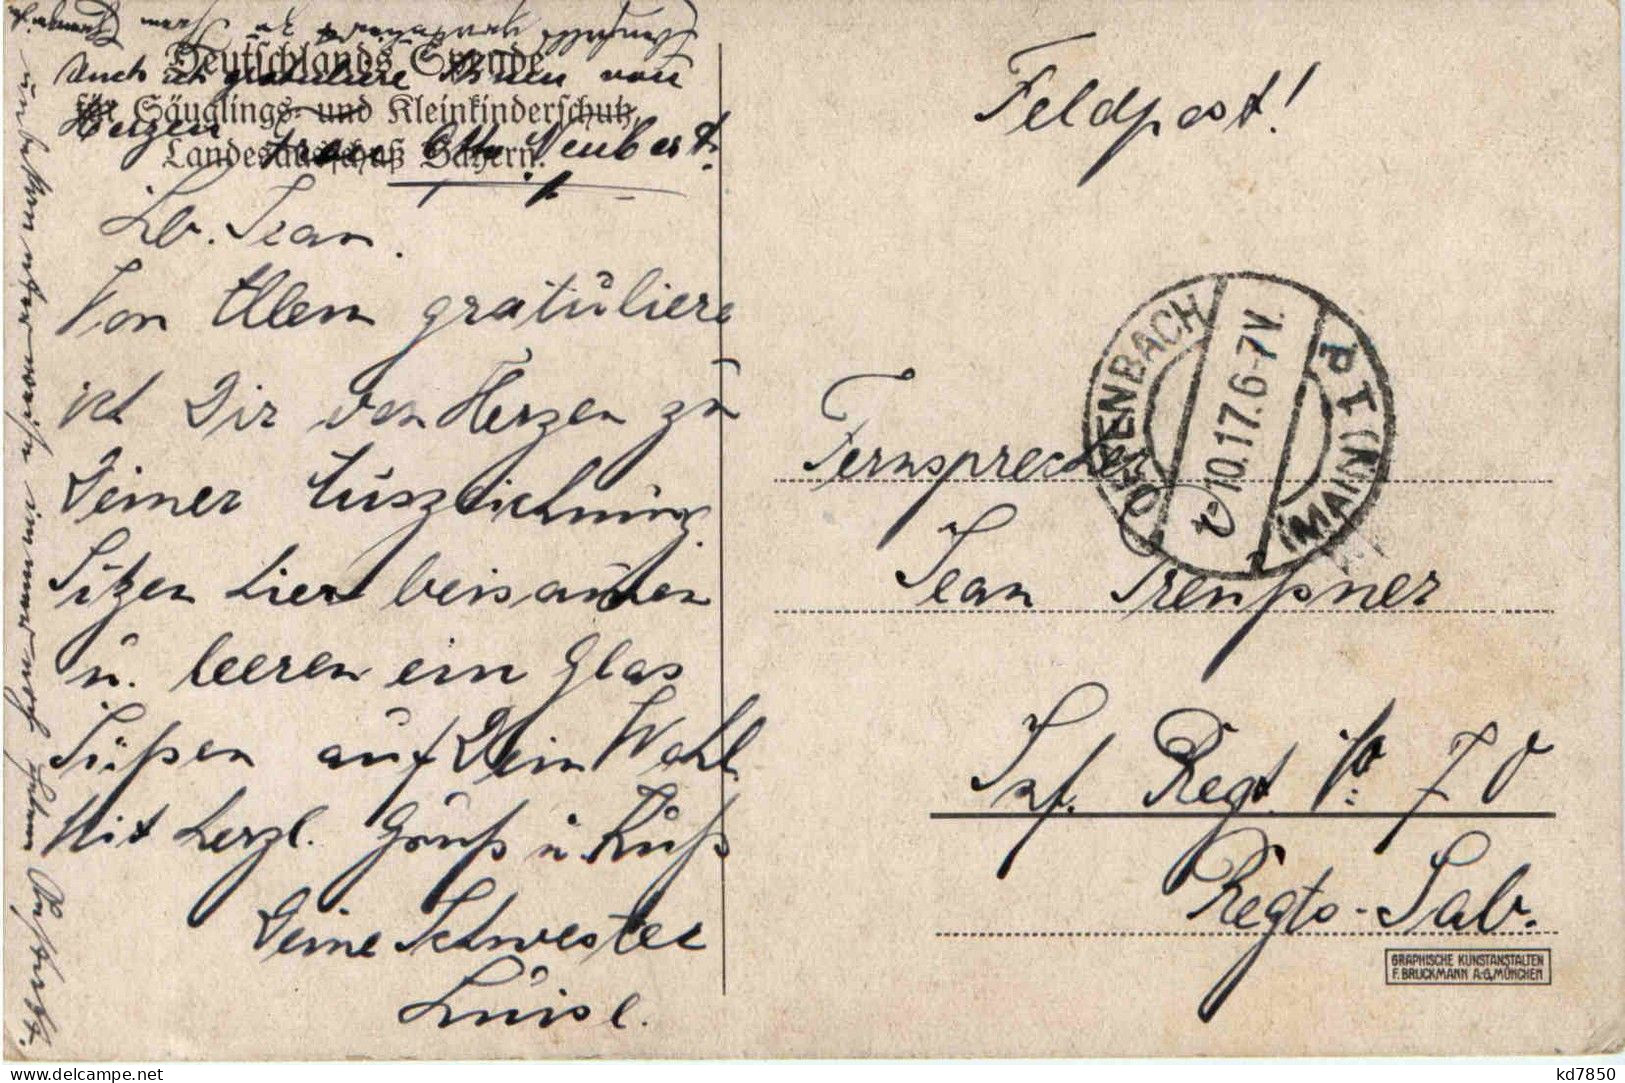 Deutschlands Spende
für Säuglings- und Kleinkinderschutz,
Landesausschuß Bayern.
Auch ich gratuliere Ihnen von
Herzen Otto Neubert.
Lb. Jean.
Vor Allem gratuliere
ich Dir von Herzen zu
Deiner Auszeichnung
Sitzen hier beisammen
u. leeren ein Glas
Süßen auf Dein Wohl
Mit herzl. Gruß u. Kuß
Deine Schwester
Luise.
Feldpost!
OFFENBACH
(MAIN) 1
10.17.6-7V.
Fernsprecher
Jean
Inf. Regt. No 70
Regts-Stab.
GRAPHISCHE KUNSTANSTALTEN
F. BRUCKMANN A.G, MÜNCHEN
kd7850